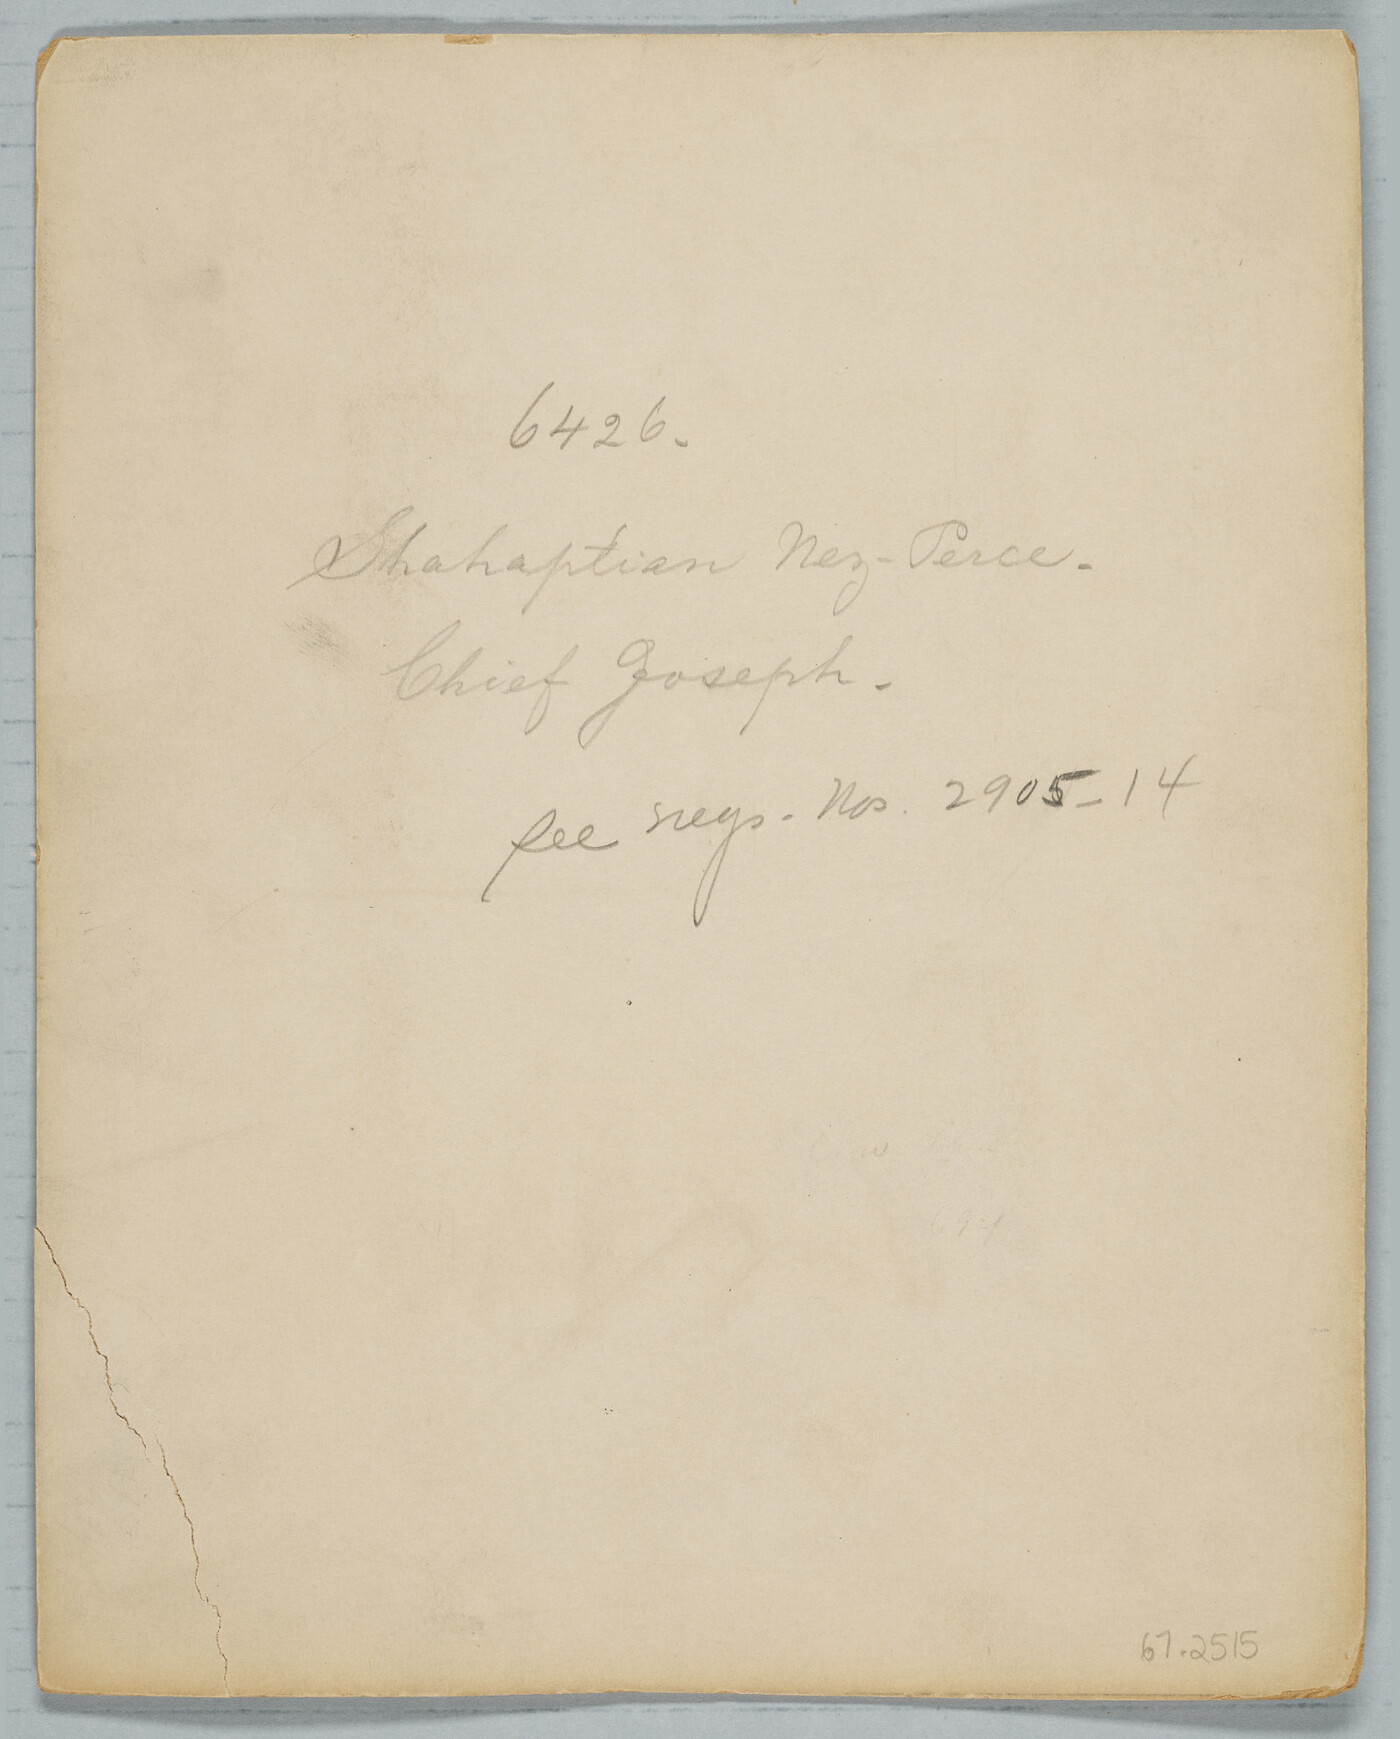 6426.
Shahaptian Nez-Perce.
Chief Joseph.
See negs. Nos. 2905-14
67.2515